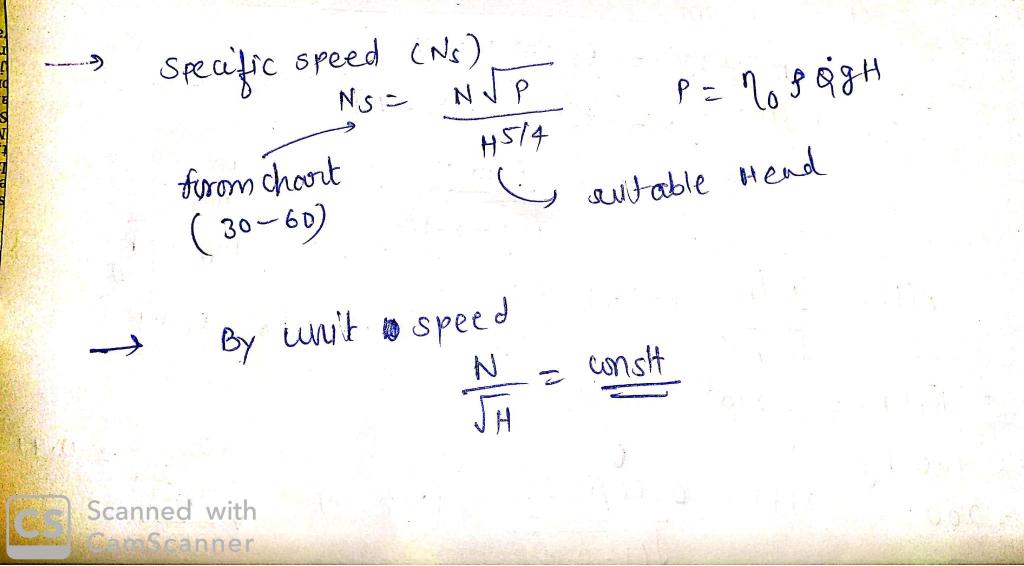 → Specific speed (Ns)
Ns = N√P / H^5/4    P = η₀ ρ Q g H
from chart
(30-60)
suitable Head
→ By unit speed
N / √H = constt
CS Scanned with
CamScanner